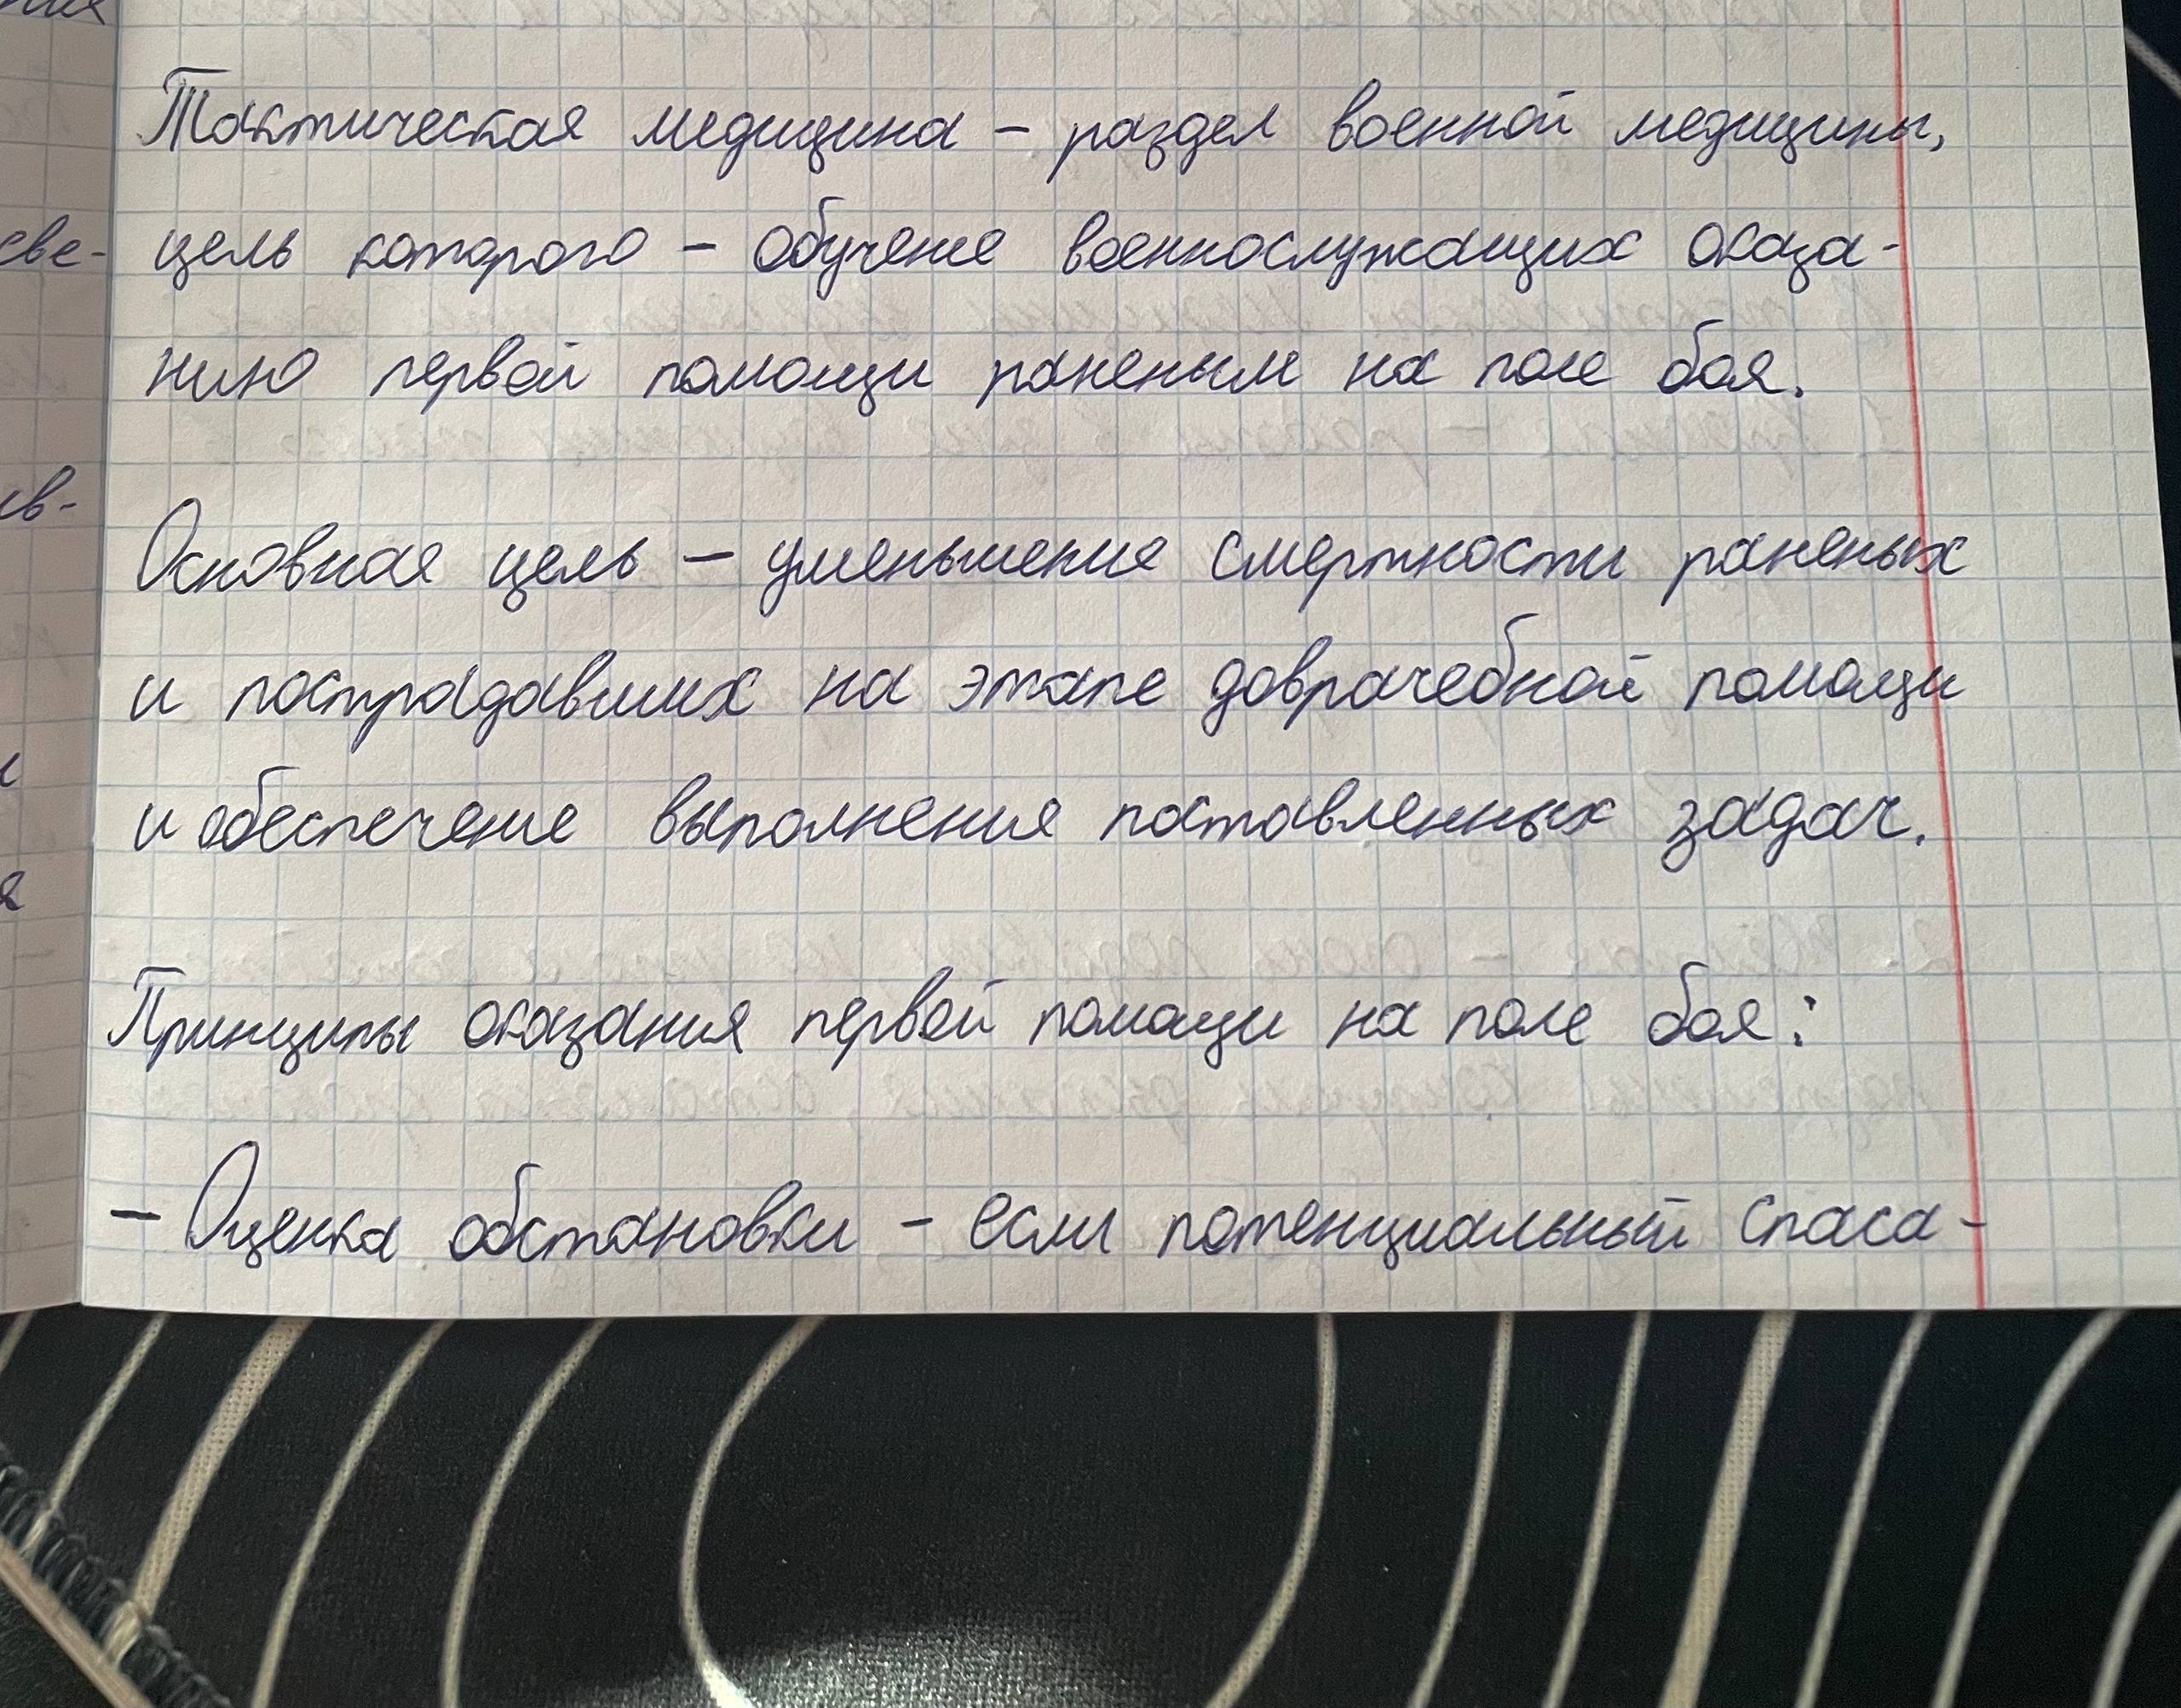 Тактическая медицина – раздел военной медицины,
цель которого – обучение военнослужащих оказа-
нию первой помощи раненым на поле боя.
Основная цель – уменьшение смертности раненых
и пострадавших на этапе доврачебной помощи
и обеспечение выполнения поставленных задач.
Принципы оказания первой помощи на поле боя:
– Оценка обстановки – если потенциальный спаса-